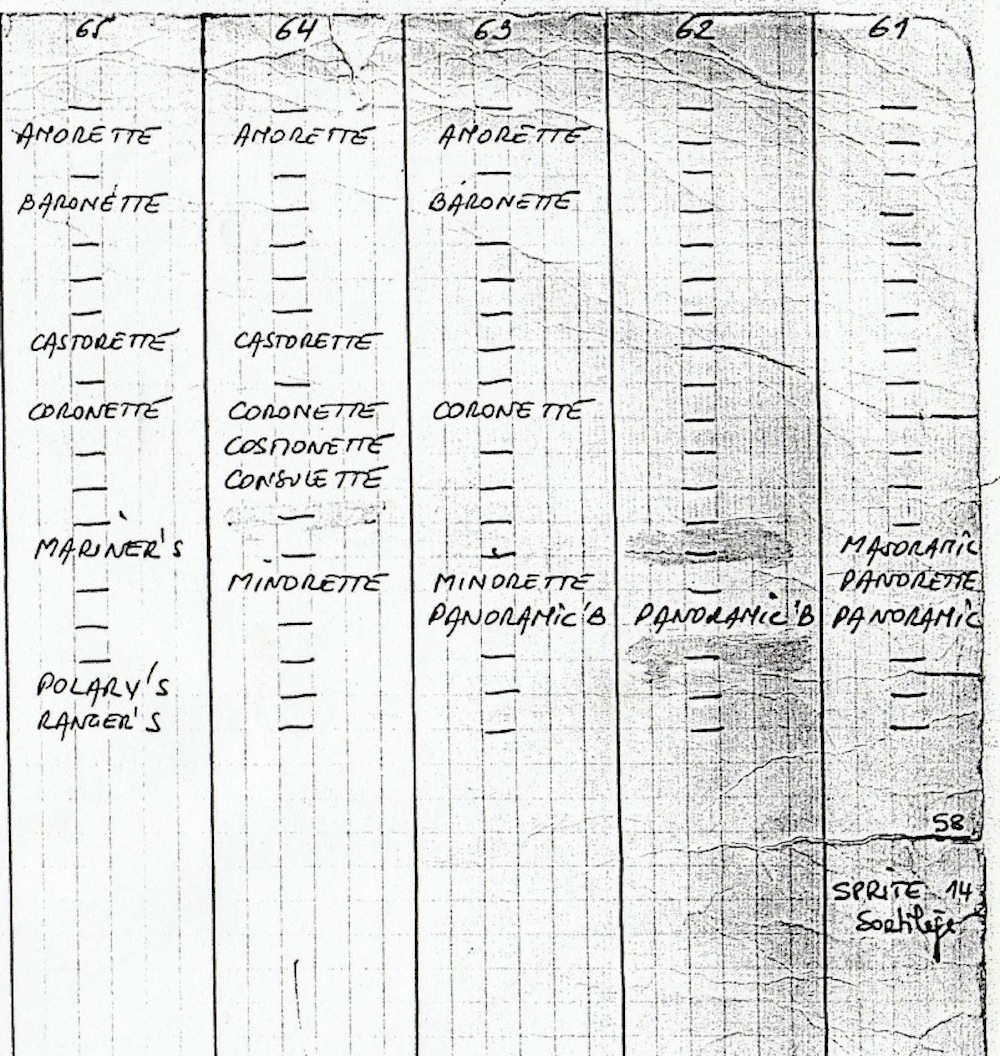 65 64 63 62 61
— — — — —
AMORETTE AMORETTE AMORETTE — —
— — — — —
BARONETTE — BARONETTE — —
— — — — —
— — — — —
— — — — —
CASTORETTE CASTORETTE — — —
— — — — —
CORONETTE CORONETTE CORONETTE — —
— COSMONETTE — — —
— CONSULETTE — — —
— — — — —
MARINER'S — — — MAJORAMIC
— MINORETTE MINORETTE — PANORETTE
— — PANORAMIC'B PANORAMIC'B PANORAMIC
— — — — —
POLARY'S — — — —
RANGER'S — — — —
58
SPRITE 14
Sortilège